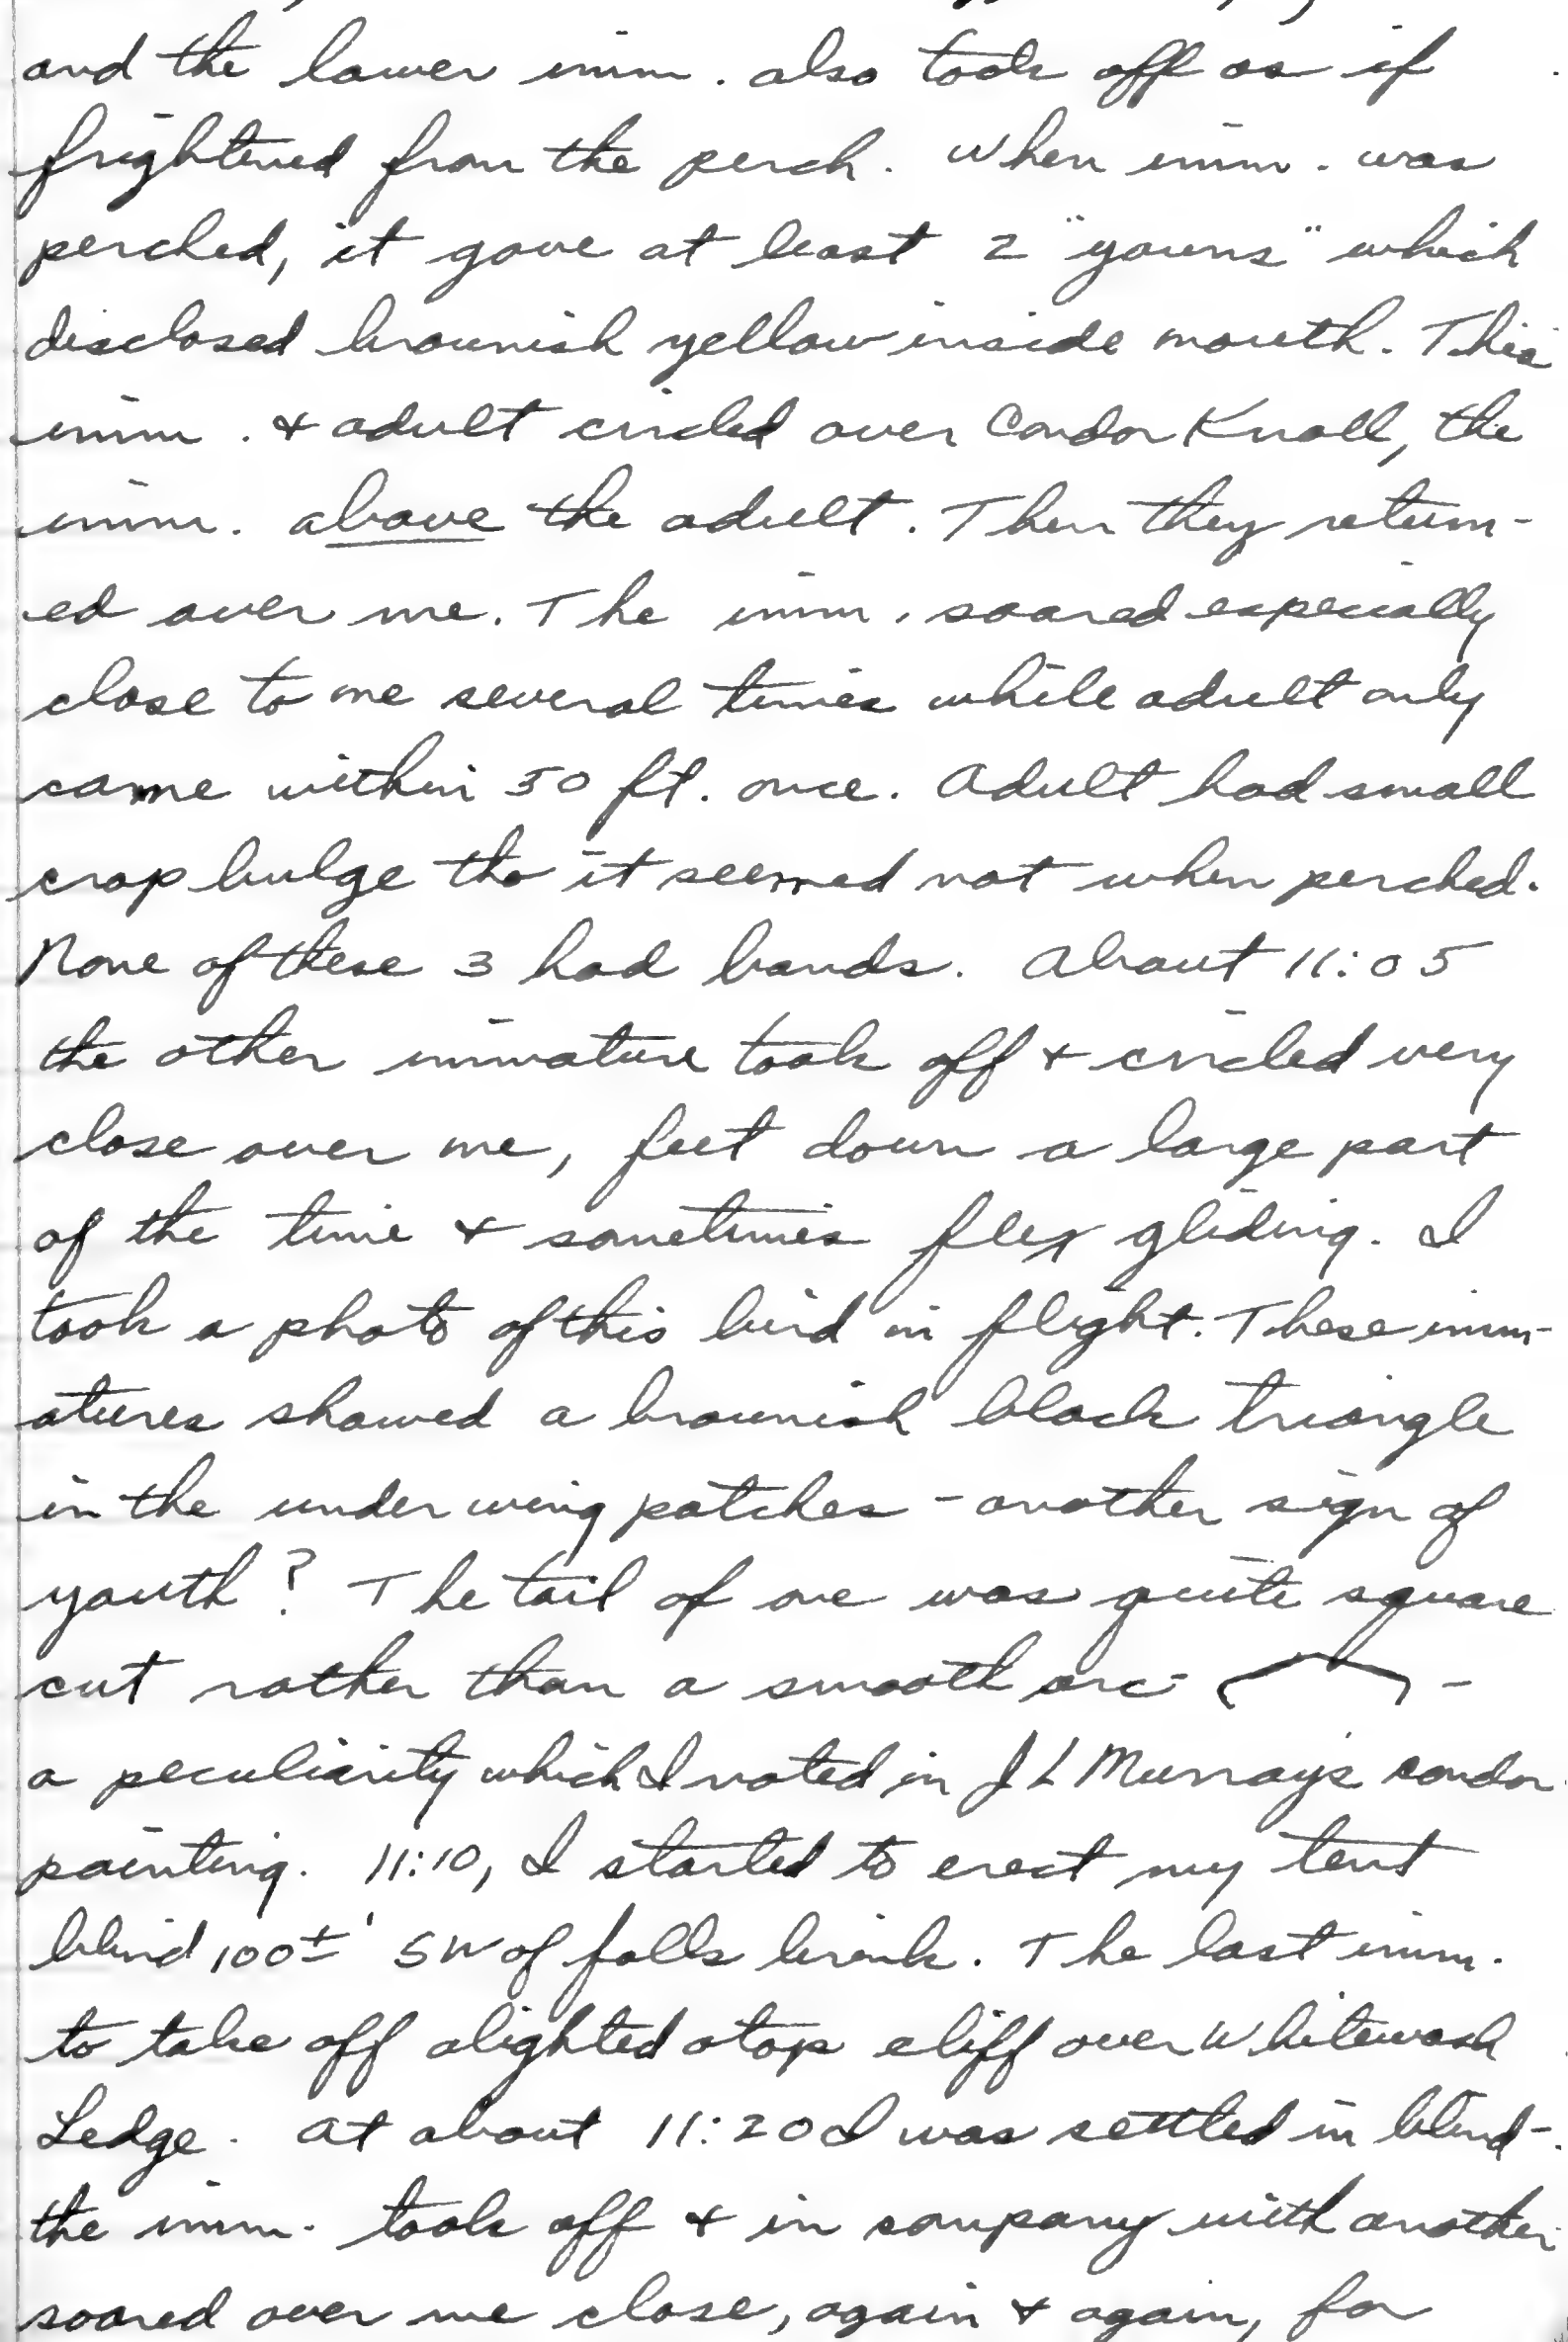 and the lower imm. also took off as if
frightened from the perch. When imm. was
perched, it gave at least 2 "yawns" which
disclosed brownish yellow inside mouth. This
imm. & adult circled over Condor Knoll, the
imm. above the adult. Then they return-
ed over me. The imm. soared especially
close to me several times while adult only
came within 50 ft. once. Adult had small
crop bulge tho it seemed not when perched.
None of these 3 had bands. About 11:05
the other immature took off & circled very
close over me, feet down a large part
of the time & sometimes flex gliding. I
took a photo of this bird in flight. These imm-
atures showed a brownish black triangle
in the under wing patches - another sign of
youth? The tail of one was quite square
cut rather than a smooth arc - -
a peculiarity which I noted in J L Murray's condor
painting. 11:10, I started to erect my tent
blind 100±' SW of falls brink. The last imm.
to take off alighted atop cliff over Whitewash
Ledge. At about 11:20 I was settled in blind -
the imm. took off & in company with another
soared over me close, again & again, for